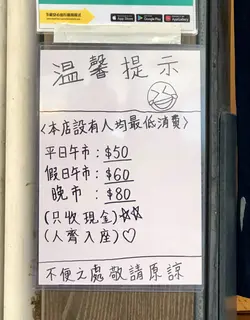 App Store
Google Play
AppGallery
溫馨提示
〈本店設有人均最低消費〉
平日午市：$50
假日午市：$60
晚市：$80
(只收現金)☆☆
(人齊入座)♡
不便之處敬請原諒